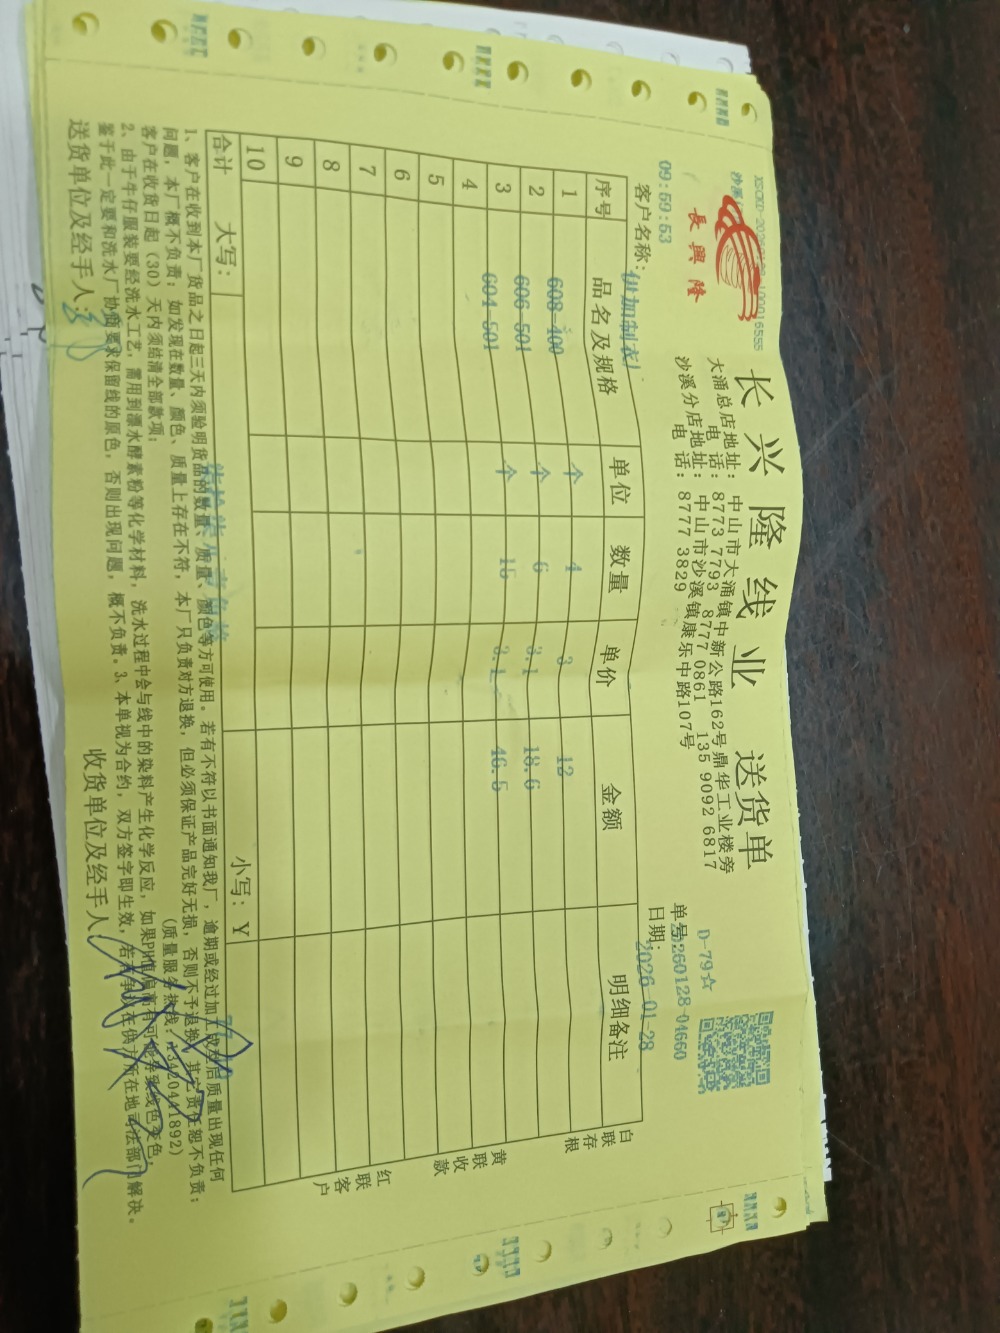 长兴隆线业 送货单
長興隆
大涌总店地址：中山市大涌镇中新公路162号鼎华工业楼旁
电话：8773 7793 8777 0861 135 9092 6817
沙溪分店地址：中山市沙溪镇康乐中路107号
电话：8777 3829
D-79☆
单号:20260128-04660
日期：2026-01-28
09:59:53
客户名称：伊加制衣厂
序号 品名及规格 单位 数量 单价 金额 明细备注
1 608-400 个 4 3 12
2 606-501 个 6 3.1 18.6
3 604-501 个 15 3.1 46.5
4
5
6
7
8
9
10
合计 大写： 小写：Y
白联存根
黄联收款
红联客户
1、客户在收到本厂货品之日起三天内须验明货品的数量、质量、颜色等方可使用。若有不符以书面通知我厂，逾期或经过加工成衣后质量出现任何
问题，本厂概不负责；如发现在数量、颜色、质量上存在不符，本厂只负责对方退换，但必须保证产品完好无损，否则不予退换，其它责任恕不负责；
客户在收货日起（30）天内须结清全部款项； （质量服务热线：13420441892）
2、由于牛仔服装要经洗水工艺，需用到漂水酵素粉等化学材料，洗水过程中会与线中的染料产生化学反应，如果PH值偏高有可能导致线色变色，
鉴于此一定要和洗水厂协商要求保留线的原色，否则出现问题，概不负责。3、本单视为合约，双方签字即生效，若有争议在供方所在地司法部门解决。
送货单位及经手人： 收货单位及经手人：